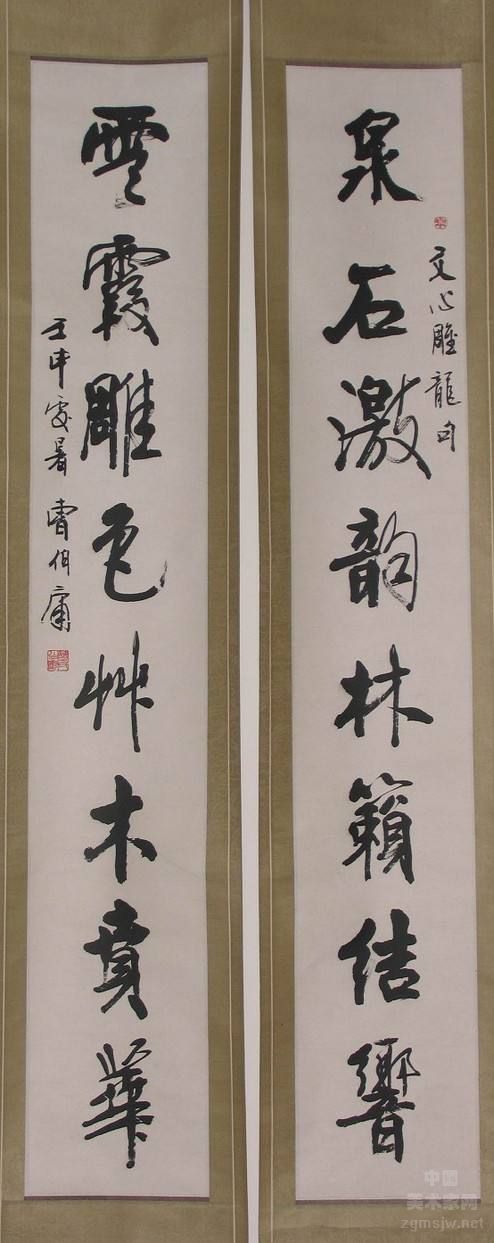 泉石激韵林籟结響
文心雕龍句
雲霞雕色艸木賁華
壬申處暑曹伯庸
中国
美术家网
zgmsjw.net